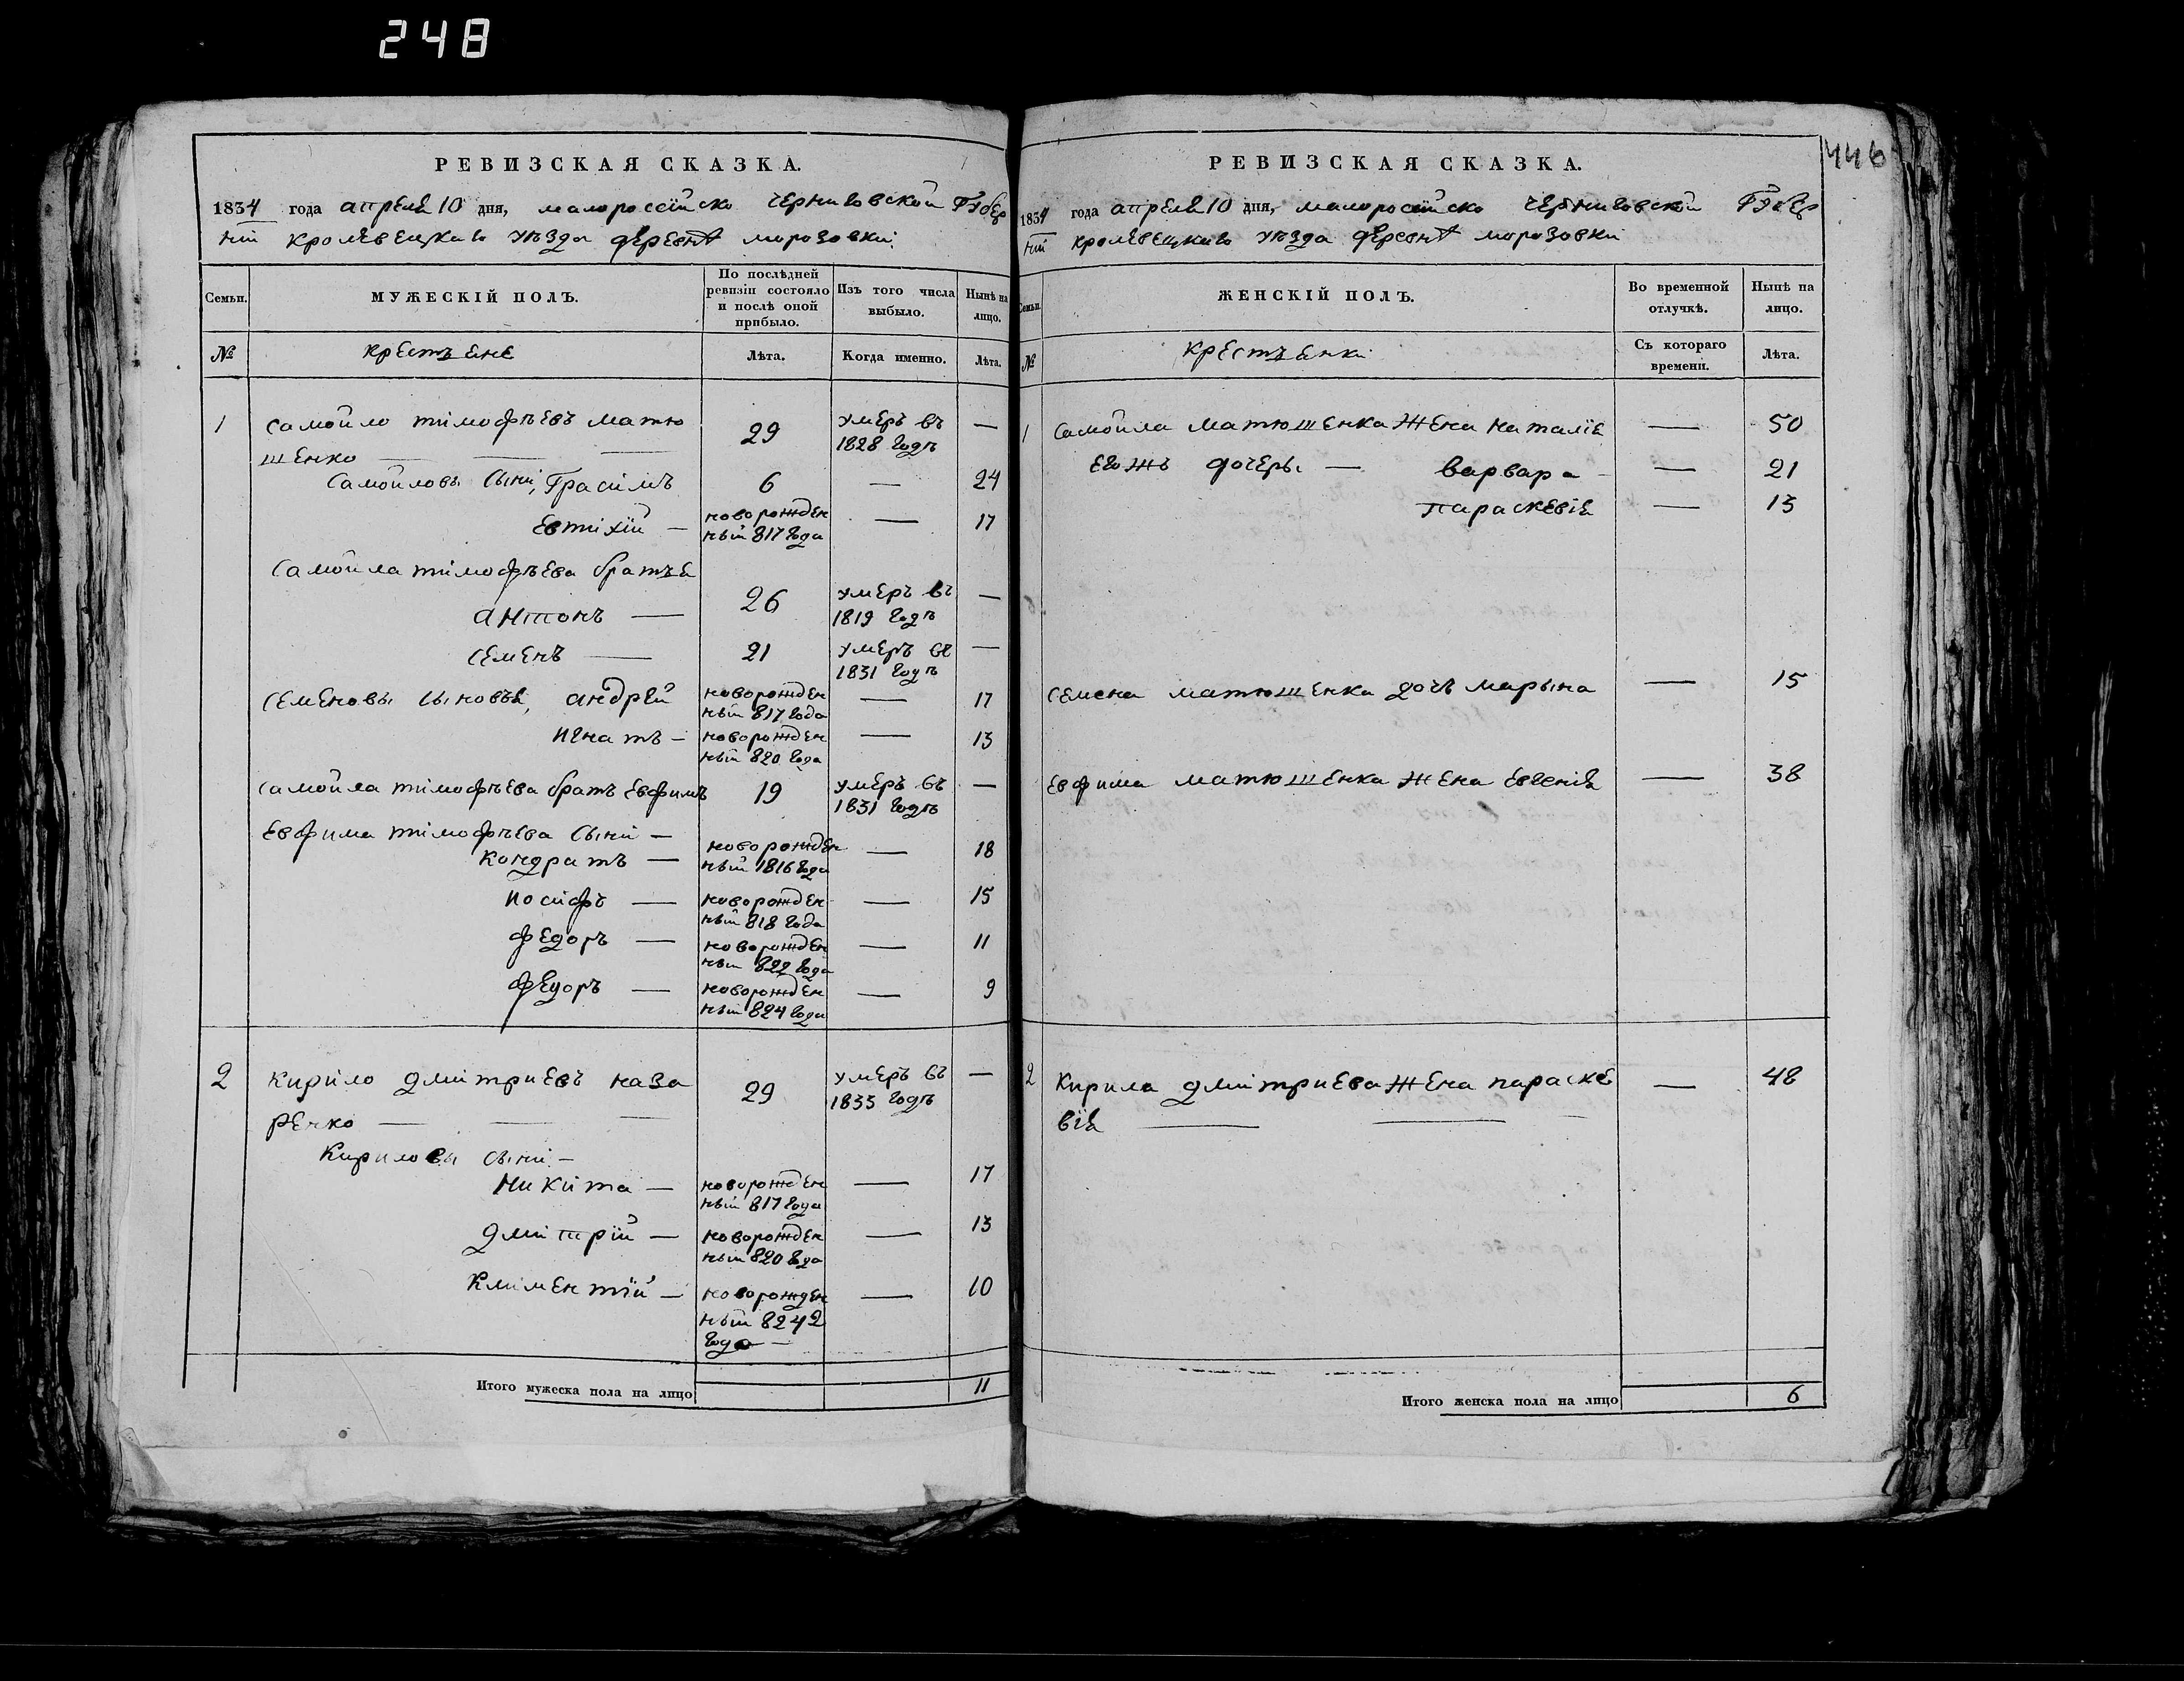 248
446
РЕВИЗСКАЯ СКАЗКА.
1834 года апреля 10 дня, малоросійско черниговской Губер
ніи кролевецкаго уѣзда деревнѣ морозовки
Семьи.
МУЖЕСКІЙ ПОЛЪ.
По послѣдней
ревизіи состояло
и послѣ оной
прибыло.
Изъ того числа
выбыло.
Нынѣ на
лицо.
№
крестъяне
Лѣта.
Когда именно.
Лѣта.
1 самойло тімофѣевъ матю 29 умеръ въ —
шенко — — — 1828 годѣ
Самойловы Сыни, Грасімъ 6 — 24
Евтіхій — новорожден — 17
ный 817 года
Самойла тімофѣева братъя
антонъ — 26 умеръ въ —
1819 годѣ
семенъ — 21 умеръ въ —
1831 годѣ
семеновы сыновъя, андрей новорожден — 17
ный 817 года
игнатъ — новорожден — 13
ный 820 года
самойла тімофѣева братъ евфимъ 19 умеръ въ —
1831 годѣ
евфима тімофѣева Сыни —
кондратъ — новорожден — 18
ный 1816 года
иосифъ — новорожден — 15
ный 818 года
федоръ — новорожден — 11
ный 822 года
федоръ — новорожден — 9
ный 824 года
2 кирило дмітриевъ наза 29 умеръ въ —
ренко — — — 1833 годѣ
Кириловы Сыни —
никита — новорожден — 17
ный 817 года
дмітрій — новорожден — 13
ный 820 года
кліментій — новорожден — 10
ный 824 2
года —
Итого мужеска пола на лицо 11
РЕВИЗСКАЯ СКАЗКА.
1834 года апреля 10 дня, малоросійско черниговской Губер
ніи кролевецкаго уѣзда деревнѣ морозовки
Семьи.
ЖЕНСКІЙ ПОЛЪ.
Во временной
отлучкѣ.
Нынѣ на
лицо.
№
крестъянки
Съ котораго
времени.
Лѣта.
1 самойла матюшенка жена наталія — 50
егожъ дочеры — варвара — 21
параскевія — 13
семена матюшенка дочъ марына — 15
евфима матюшенка жена евгенія — 38
2 кирила дмітриева жена параске — 48
вія — —
Итого женска пола на лицо 6